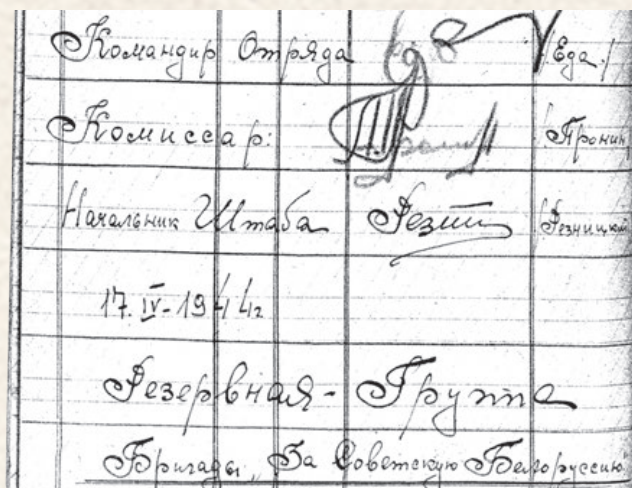 Командир Отряда /Еда/
Комиссар: /Пронин
Начальник Штаба Резн /Резницкий
17.IV-1944г
Резервная - Группа
Бригады „За Советскую Белоруссию"